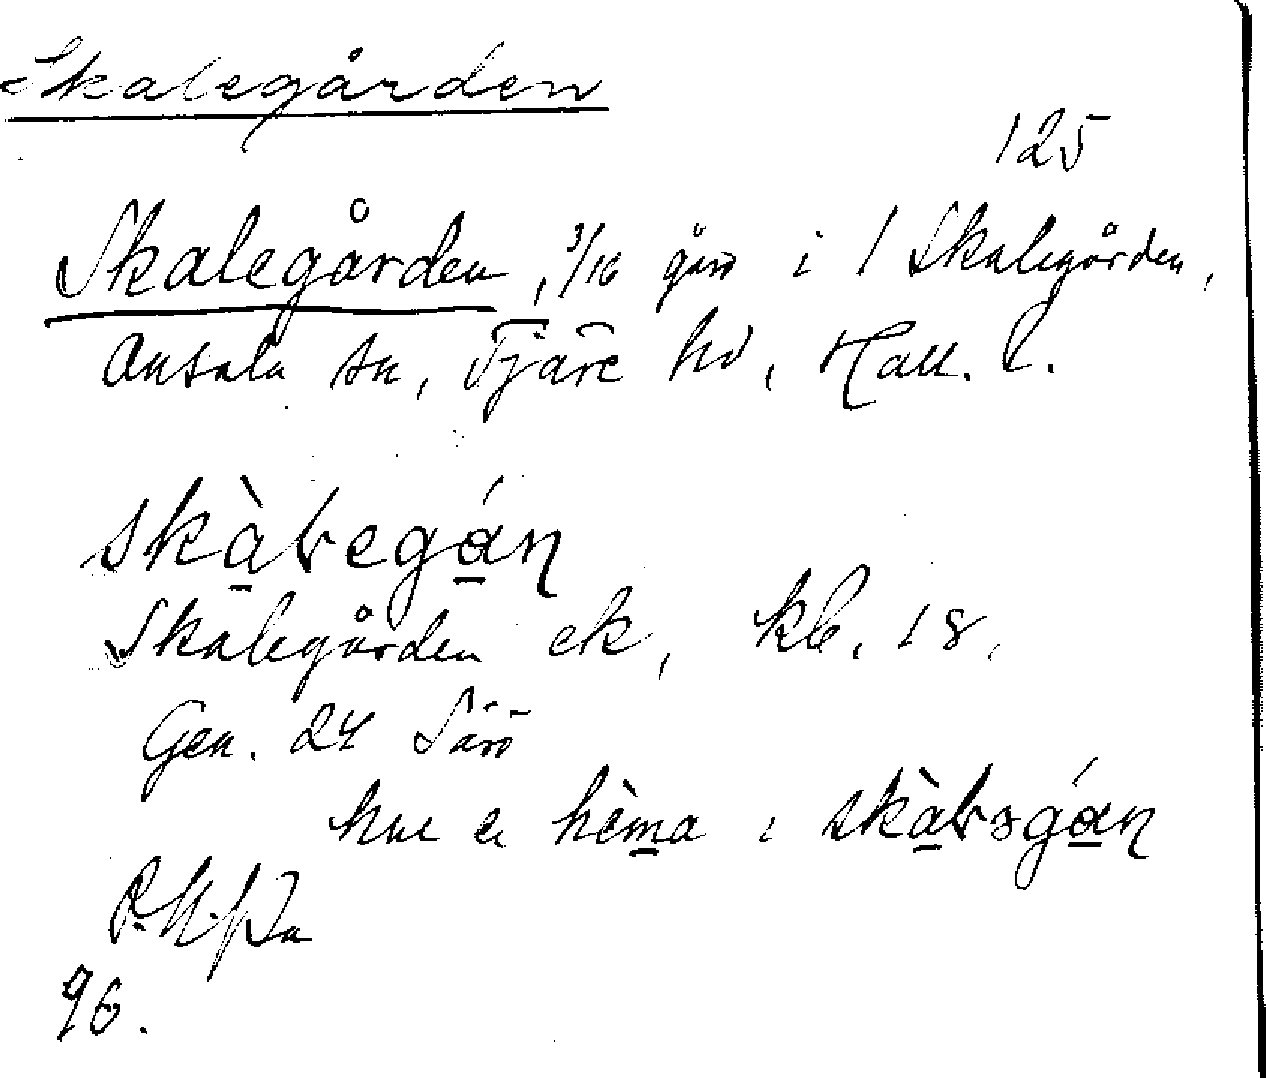 Skalegården
125
Skalegården, 3/16 gård i 1 Skalegården,
Onsala sn, Fjäre hd, Hall. l.
skàlegán
Skalegården ek, kb. 18.
Gen. 24 Särö
hèma i skàləgán
96.